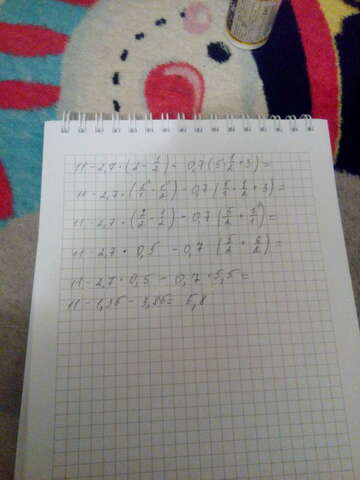 11 - 2,7 · (2 - 1/2) - 0,7 (5 · 1/2 + 3) =
11 - 2,7 · (2/1 - 1/2) - 0,7 (5/1 · 1/2 + 3) =
11 - 2,7 · (2/2 - 1/2) - 0,7 (5/2 + 3/1) =
11 - 2,7 · 0,5 - 0,7 (5/2 + 6/2) =
11 - 2,7 · 0,5 - 0,7 · 5,5 =
11 - 1,35 - 3,85 = 5,8